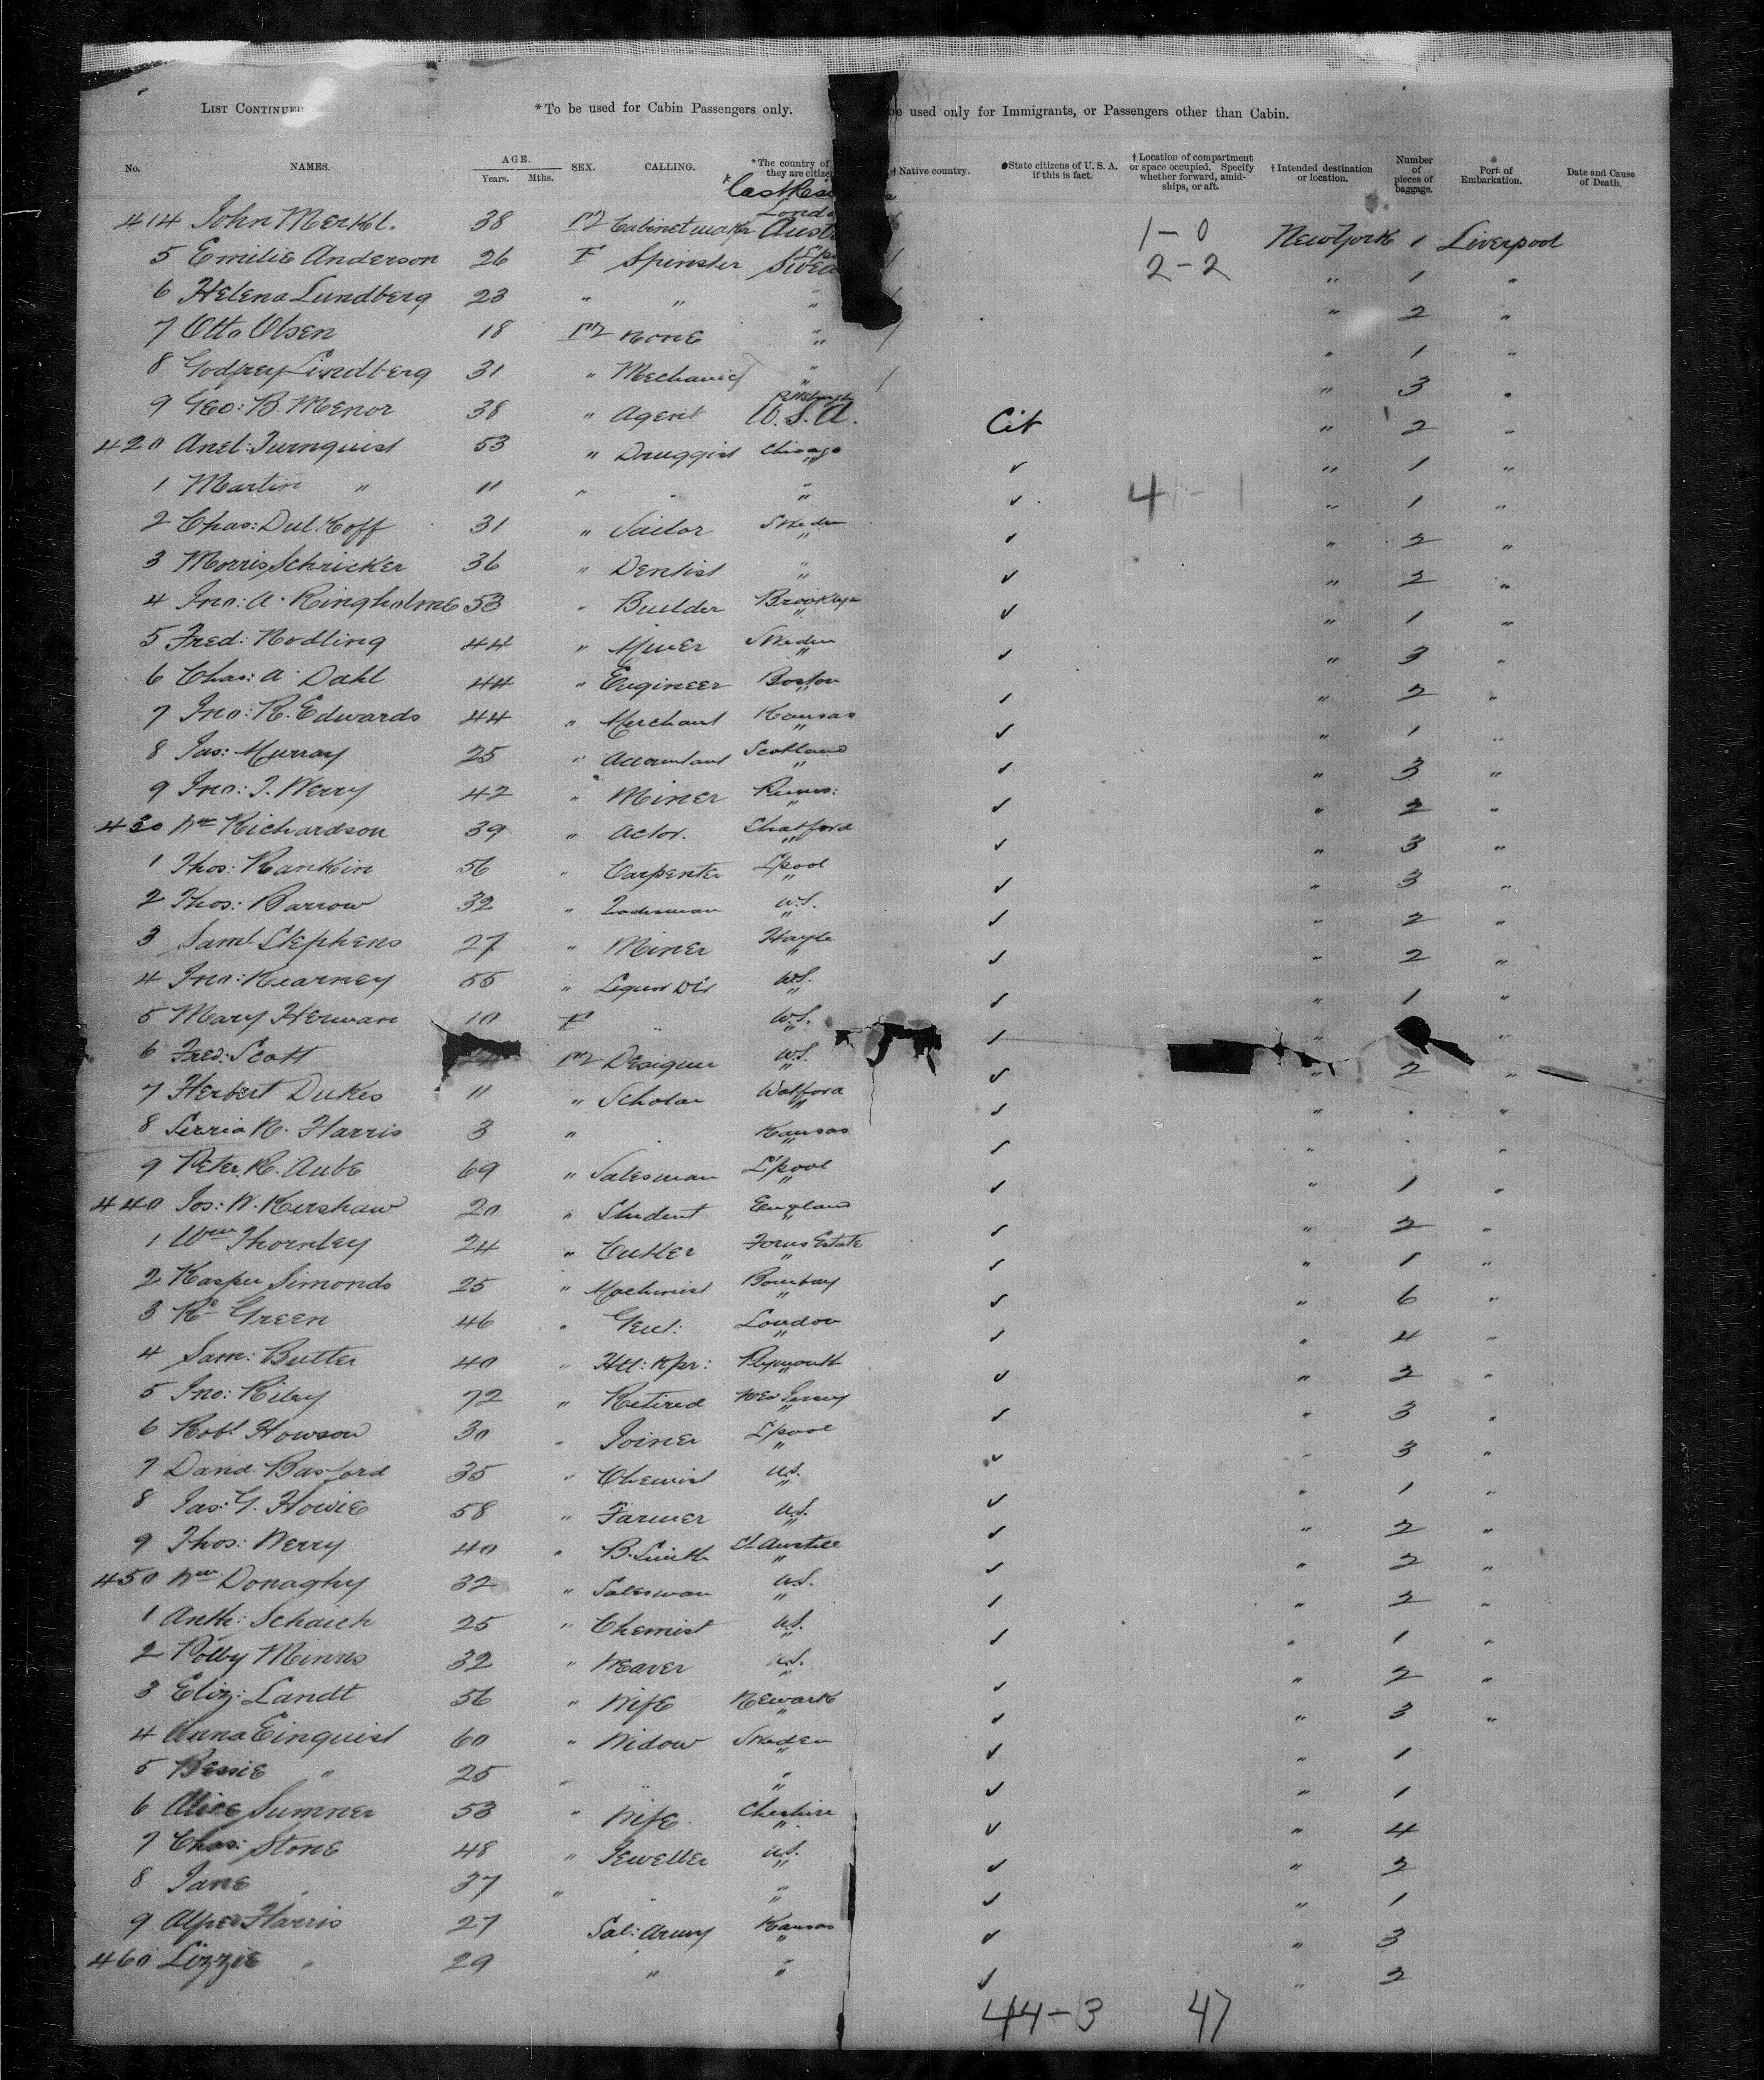 LIST CONTINUED *To be used for Cabin Passengers only. be used only for Immigrants, or Passengers other than Cabin.
No. NAMES. AGE. Years. Mths. SEX. CALLING. *The country of they are citize † Native country. State citizens of U. S. A. if this is fact. † Location of compartment or space occupied. Specify whether forward, amidships, or aft. † Intended destination or location. Number of pieces of baggage. Port of Embarkation. Date and Cause of Death.
414 John Merkl. 38 M Cabinetmakr Aust 1-0 New York 1 Liverpool
5 Emilie Anderson 26 F Spinster Swed 2-2 " 1 "
6 Helena Lundberg 23 " " " " 2 "
7 Otto Olsen 18 M None " " 1 "
8 Godfrey Lindberg 31 " Mechanic " " 3 "
9 Geo: B. Menor 38 " Agent Pittsburgh U.S.A. Cit " 2 "
420 Axel: Turnquist 53 " Druggist Chicago " 1 "
1 Martin " 11 " " " 1 "
2 Chas: Dul Koff 31 " Sailor Sweden " 2 "
3 Morris Schricker 36 " Dentist " " 2 "
4 Jno: A. Ringholme 53 " Builder Brooklyn " 1 "
5 Fred: Nodling 44 " Miner Sweden " 3 "
6 Chas: A. Dahl 44 " Engineer Boston " 2 "
7 Jno: R. Edwards 44 " Merchant Kansas " 1 "
8 Jas: Murray 25 " Accountant Scotland " 3 "
9 Jno: T. Werry 42 " Miner " 2 "
430 Wm Richardson 39 " Actor. " 3 "
1 Thos: Rankin 56 " Carpenter L'pool " 3 "
2 Thos: Barrow 32 " U.S. " 2 "
3 Saml Stephens 27 " Miner Hayle " 2 "
4 Jno: Kearney 55 " Liquor Dlr U.S. " 1 "
5 Mary Herman 10 F " U.S. " "
6 Fred: Scott M Designer U.S. " 2 "
7 Herbert Dukes 11 " Scholar Watford " "
8 Harris 3 " Kansas " "
9 Peter R. Aube 69 " Salesman L'pool " 1 "
440 Jos: W. Kershaw 20 " Student England " 2 "
1 Wm Thornley 24 " Cutler " 1 "
2 Kasper Simonds 25 " Machinist Bombay " 6 "
3 Rd Green 46 " Gent: London " 4 "
4 Sam: Butter 40 " Htl: Kpr: Plymouth " 2 "
5 Jno: Riley 72 " Retired New Jersey " 3 "
6 Robt Howson 30 " Joiner L'pool " 3 "
7 David Basford 35 " Chemist U.S. " 1 "
8 Jas: G. Howie 58 " Farmer U.S. " 2 "
9 Thos: Werry 40 " B. Smith St Austell " 2 "
450 Wm Donaghy 32 " Salesman U.S. " 2 "
1 Anth: Schaich 25 " Chemist U.S. " 1 "
2 Polly Minns 32 " Weaver U.S. " 2 "
3 Eliz: Landt 56 " Wife Newark " 3 "
4 Anna Einquist 60 " Widow Sweden " 1
5 Bessie " 25 " " " " 1
6 Alice Sumner 53 " Wife Cheshire " 4
7 Chas: Stone 48 " Jeweller U.S. " 2
8 Jane " 37 " " " 1
9 Alfred Harris 27 Sal: Army Kansas " 3
460 Lizzie " 29 " " " 2
44-3 47